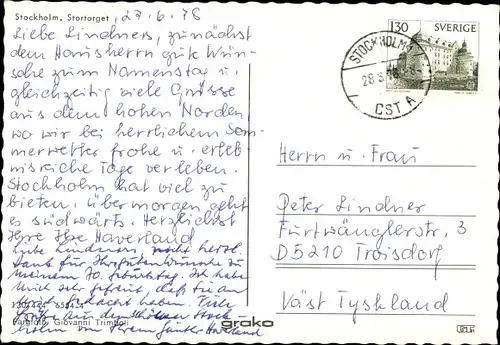 Stockholm, Stortorget, 27.6.78
Liebe Lindners, zunächst
dem Hausherrn gute Wün-
sche zum Namenstag u.
gleichzeitig viele Grüsse
aus dem hohen Norden,
wo wir bei herrlichem Som-
merwetter frohe u. erleb-
nisreiche Tage verleben.
Stockholm hat viel zu
bieten, übermorgen geht
es südwärts. Herzlichst
Ihre Ilse Haverland
Liebe Lindners, recht herzl.
Dank für Ihre guten Wünsche zu
meinem 70. Geburtstag. Ich habe
mich sehr gefreut, daß Sie an
gedacht haben. Viele
Grüße aus dem schönen Stock-
holm von Ihrem Günter Haverland
Foto: Giovanni Trimboli
grako
130
SVERIGE
STOCKHOLM
CST A
Herrn u. Frau
Peter Lindner
Furtwänglerstr. 3
D5210 Troisdorf
Väst Tyskland